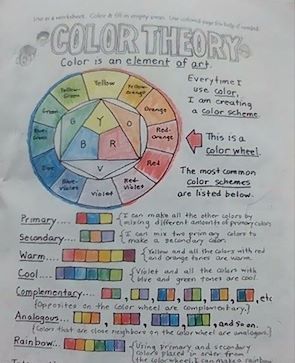 Use as a worksheet. Color & fill in empty areas. Use colored page for help if needed.
COLOR THEORY
Color is an element of art.
Yellow
Yellow-Orange
Orange
Red-Orange
Red
Red-Violet
Violet
Blue-Violet
Blue
Blue-Green
Green
Yellow-Green
Y
O
R
V
B
G
Everytime I
use color,
I am creating
a color scheme.
This is a
color wheel.
The most common
color schemes
are listed below.
Primary.... {I can make all the other colors by
mixing different amounts of primary colors
Secondary.... {I can mix two primary colors to
make a secondary color.
Warm.... {Yellow and all the colors with red
and orange tones are warm.
Cool.... {Violet and all the colors with
blue and green tones are cool.
Complementary.... , , , , , etc
{Opposites on the color wheel are complementary.}
Analogous.... , , , and so on.
{Colors that are close neighbors on the color wheel are analogous.}
Rainbow... {Using primary and secondary
colors placed in order from
the color wheel, I can make a rainbow